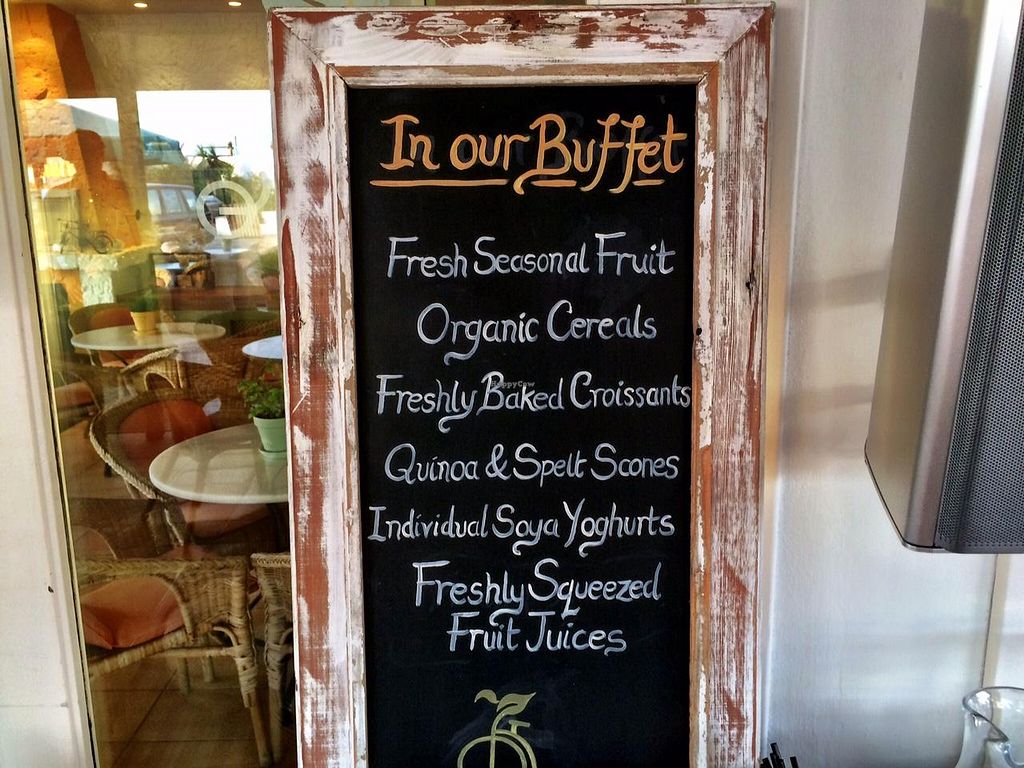 In our Buffet
Fresh Seasonal Fruit
Organic Cereals
Freshly Baked Croissants
HappyCow
Quinoa & Spelt Scones
Individual Soya Yoghurts
Freshly Squeezed
Fruit Juices